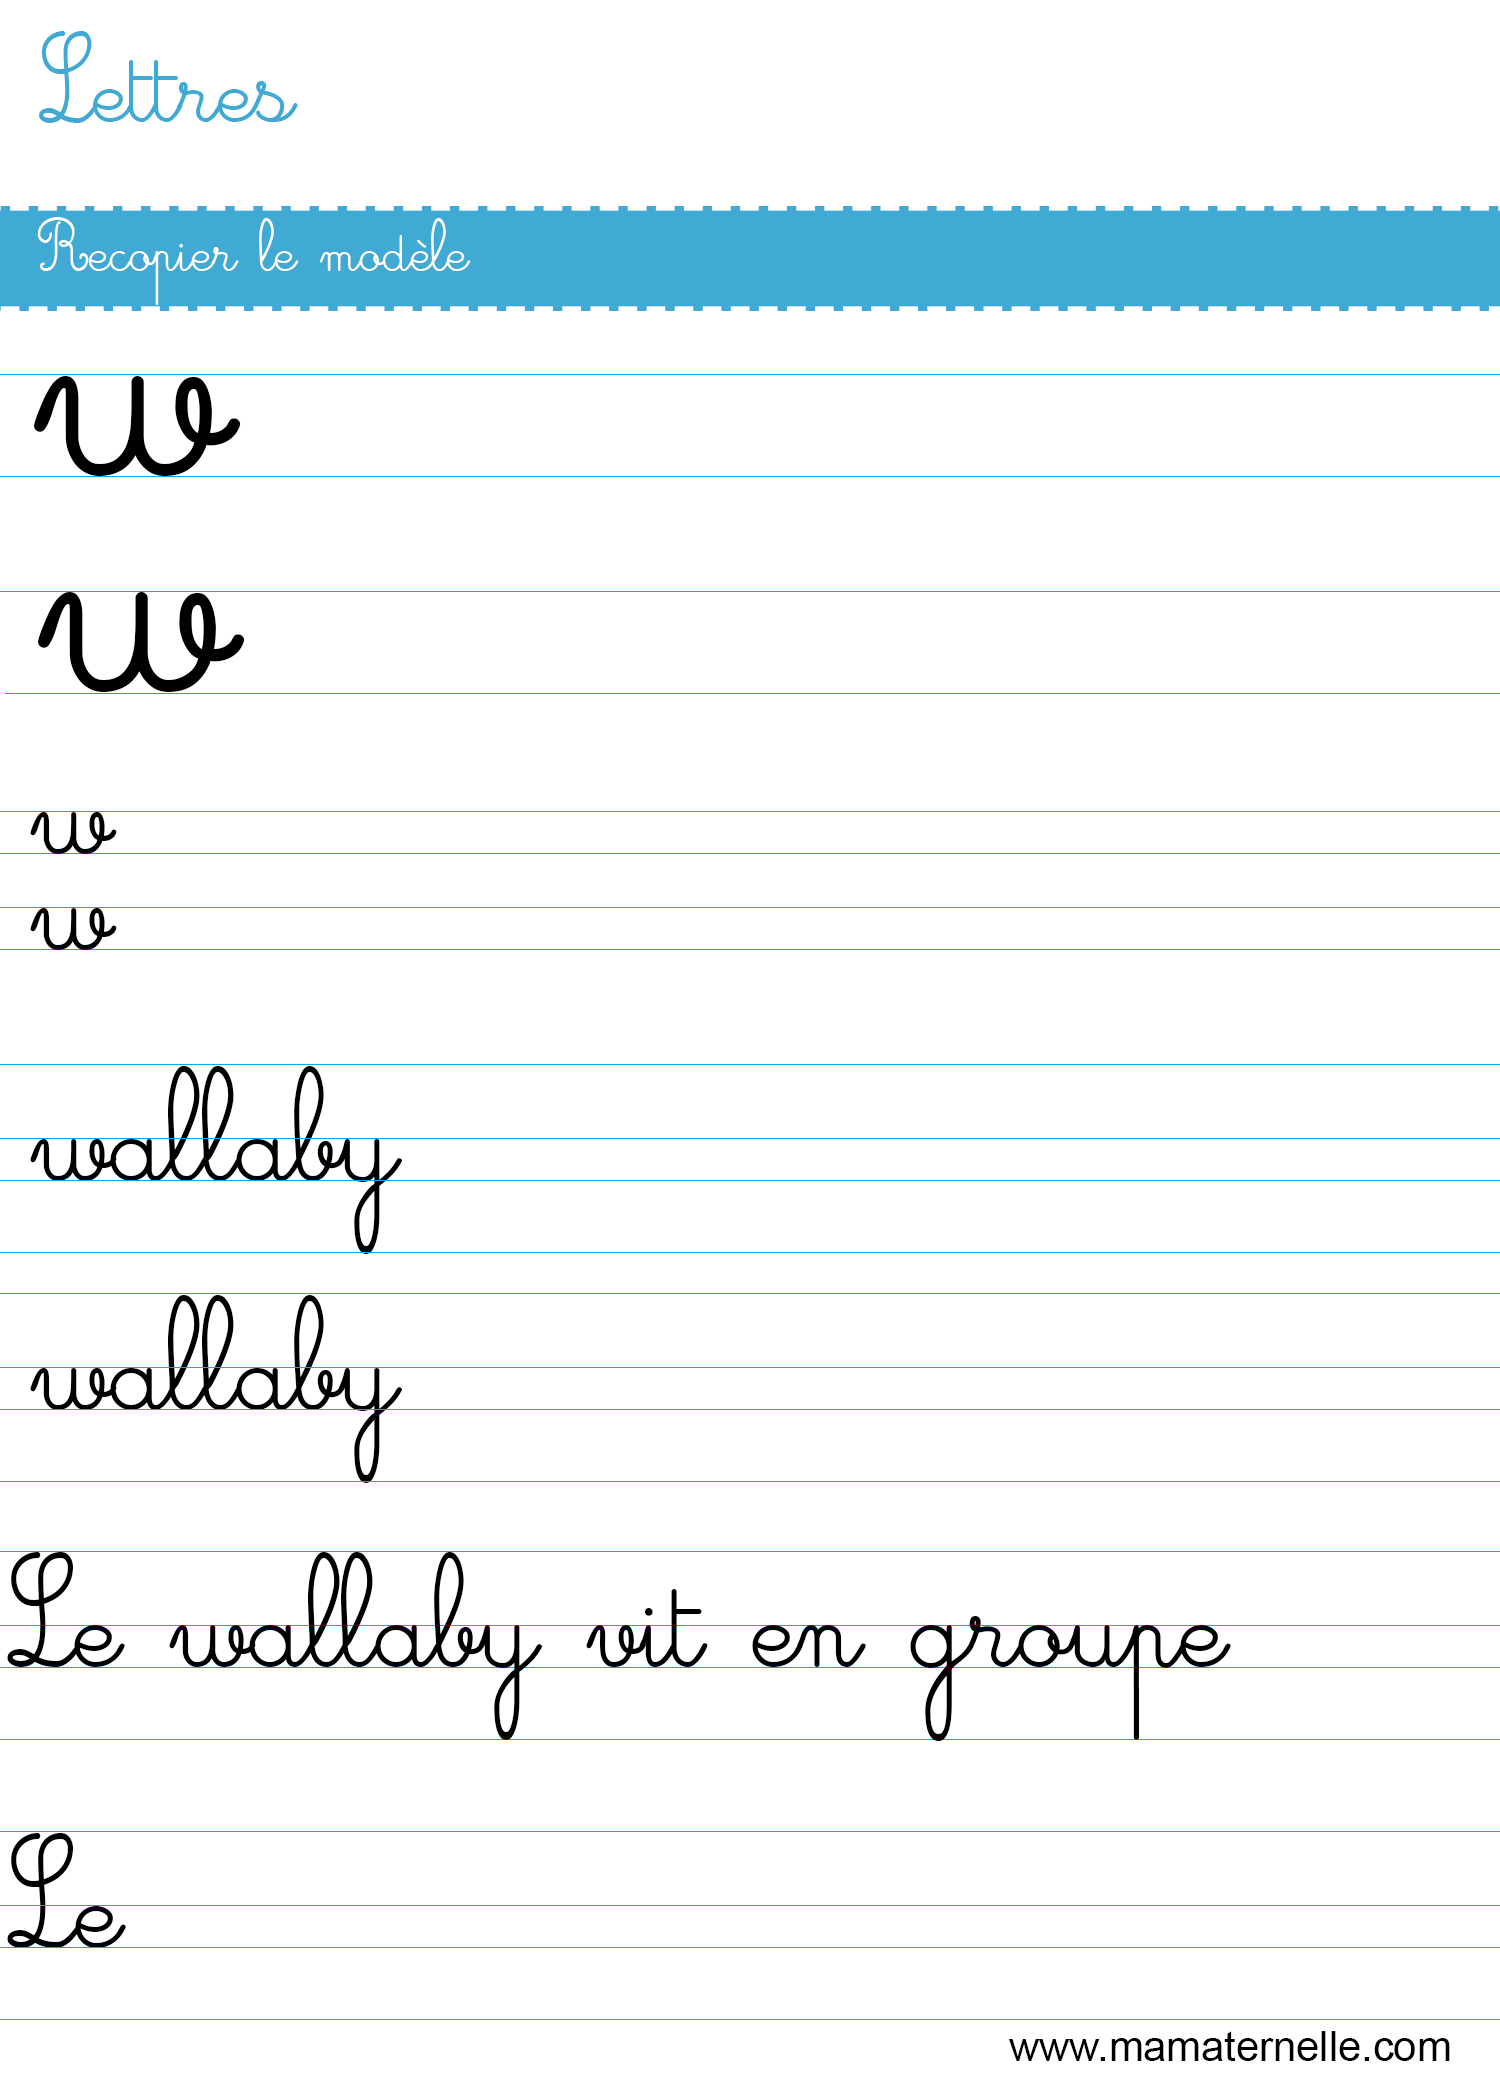 Lettres
Recopier le modèle
w
w
w
w
wallaby
wallaby
Le wallaby vit en groupe
Le
www.mamaternelle.com